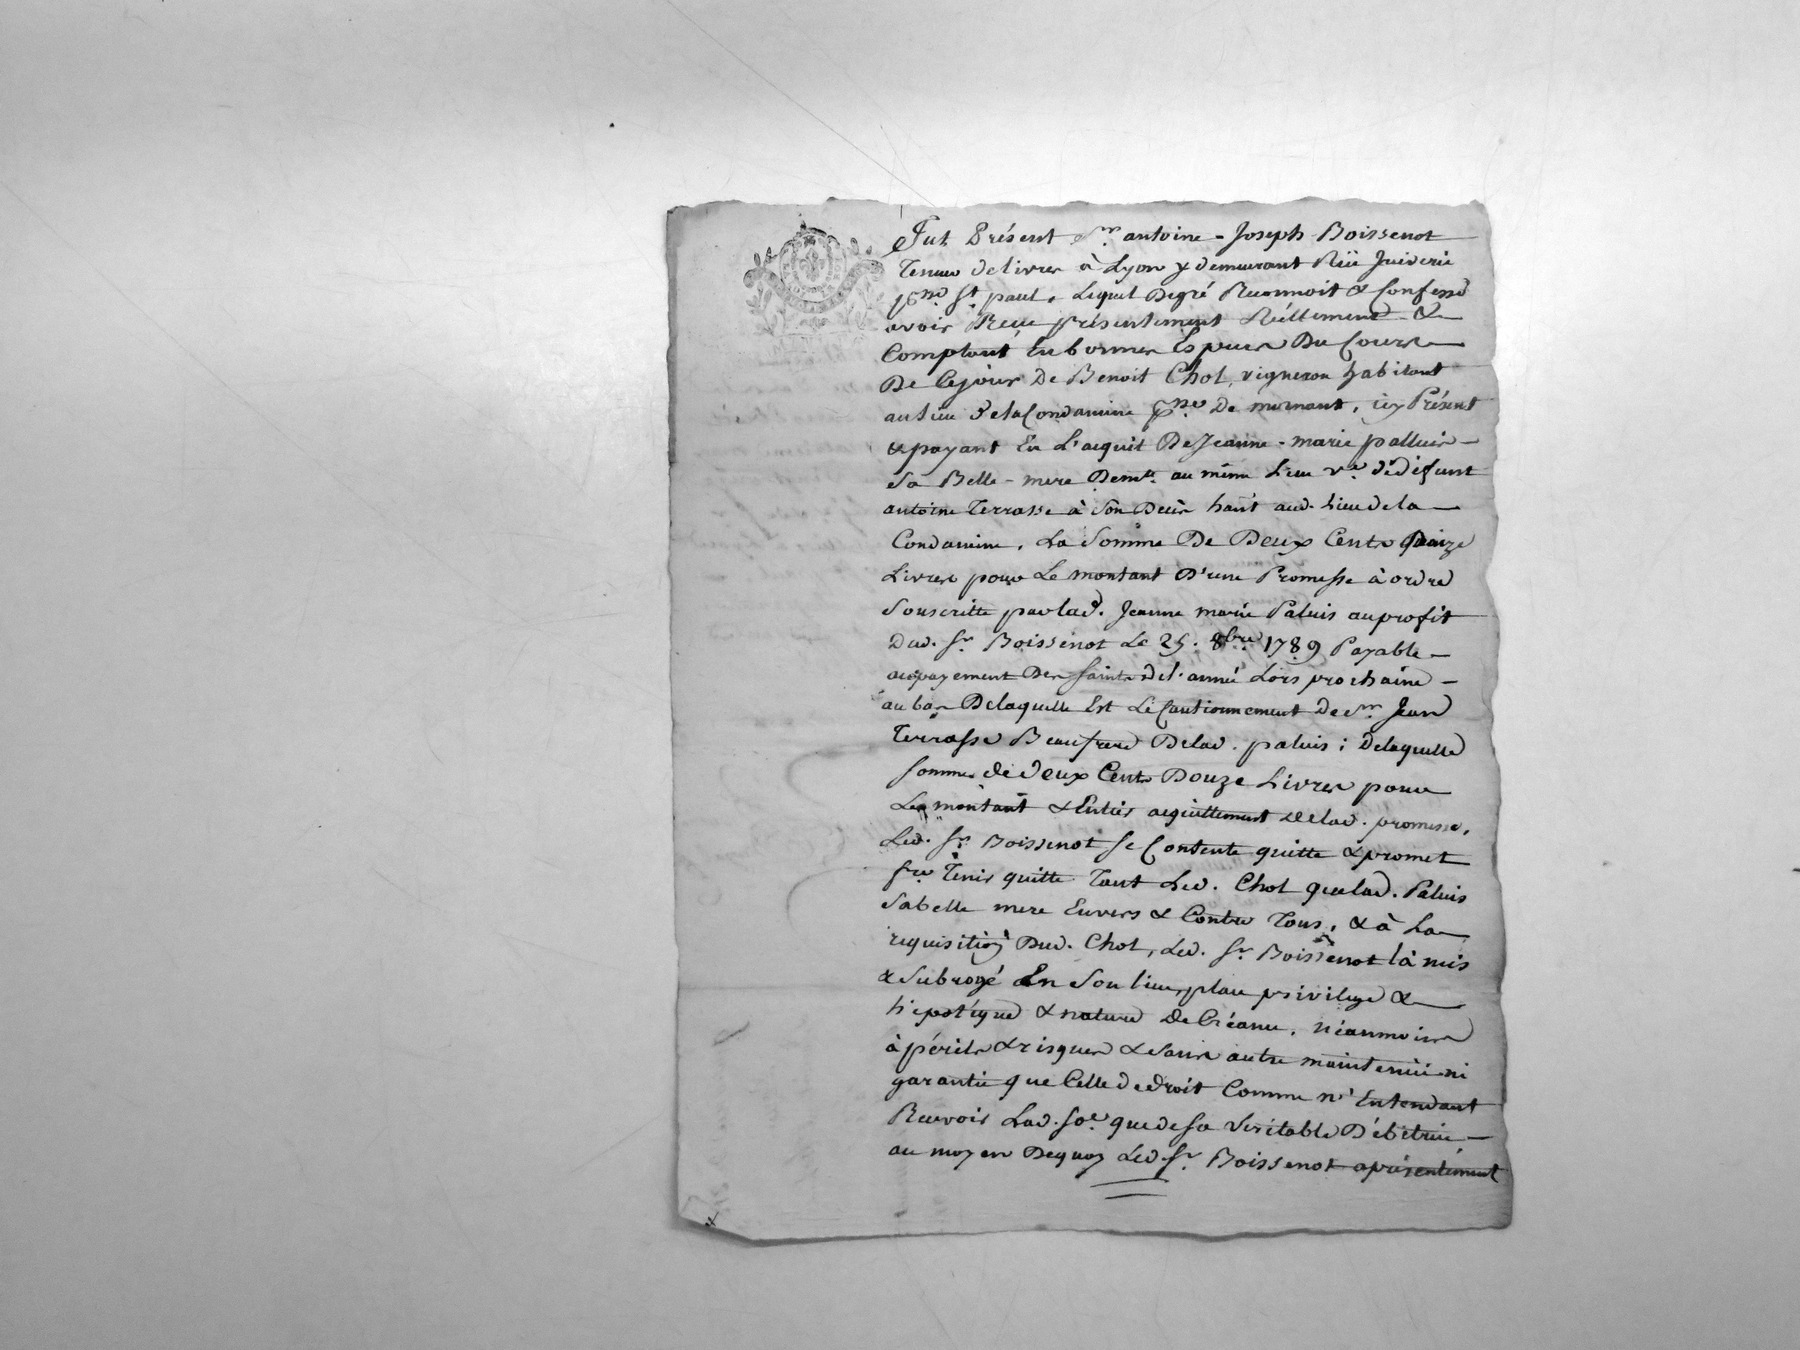 Fut Présent Sr. antoine - Joseph Boissenot
Teneur de livres à Lyon y demeurant Rüe Juiverie
psse. St. paul, Lequel Degré Reconnoit & Confesse
avoir Recu présentement Réellement &
Comptant En bonnes Especes Du Cours
De Cejour De Benoit Chol, vigneron habitant
au lieu de la Condamine psse. De mornant, icy Présent
& payant En L'acquit De Jeanne - marie palluis
Sa Belle - mere Demte. au même Lieu ve. de défunt
antoine Terrasse à Son Decès hant aud. Lieu de la
Condamine, La Somme De Deux Cents Douze
Livres pour Le montant D'une Promesse à ordre
Souscritte par lad. Jeanne marie Paluis au profit
Dud. Sr. Boissenot Le 25. 8bre 1789 Payable
au payement Des Saints de l'année Lors prochaine
au bas De laquelle Est Le Cautionnement De Sr. Jean
Terrasse Beaufrere De lad. paluis ; De laquelle
Somme de deux Cents Douze Livres pour
Le montant & Entier acquittement de lad. promesse,
Led. Sr. Boissenot Se Contente quitte & promet
fre Tenir quitte Tant Led. Chol que lad. Paluis
Sa belle mere Envers & Contre Tous, & à La
requisition Dud. Chol, Led. Sr. Boissenot l'à mis
& Subrogé En Son lieu, place privilege &
hipotéque & nature De Créance, néanmoins
à périls & risques & Sans autre maintenüe ni
garantie que Celle de droit Comme n'Entendant
Recevoir Lad. Soe. que de Sa Veritable Débitrice
au moyen Dequoy Led. Sr. Boissenot a présentement